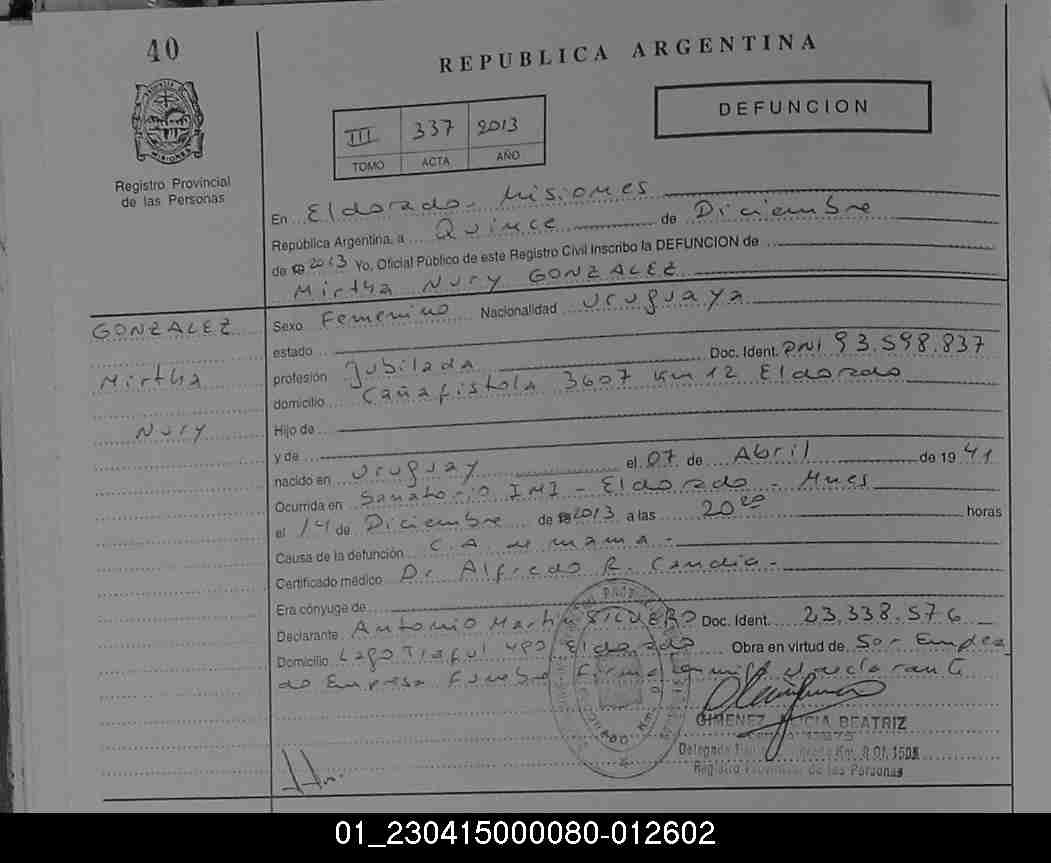 40
REPUBLICA ARGENTINA
DEFUNCION
III 337 2013
TOMO ACTA AÑO
MISIONES
Registro Provincial
de las Personas
En Eldorado - Misiones
República Argentina, a Quince de Diciembre
de 2013 Yo, Oficial Público de este Registro Civil Inscribo la DEFUNCION de
Mirtha Nury GONZALEZ
GONZALEZ
Mirtha
Nury
Sexo Femenino Nacionalidad uruguaya
estado
profesión Jubilada Doc. Ident. DNI 93.598.837
domicilio Cañafistola 3607 Km 12 Eldorado
Hijo de
y de
nacido en Uruguay el 07 de Abril de 19 41
Ocurrida en Sanatorio IMI - Eldorado - Mnes
el 14 de Diciembre de 2013 a las 20 20 horas
Causa de la defunción C.A de mama -
Certificado médico Dr Alfredo R. Candia -
Era cónyuge de
Declarante Antonio Martin Doc. Ident. 23.338.576
Domicilio Lago 490 Eldorado Obra en virtud de Ser Emplea
do Empresa Funebre Firma
GIMENEZ ALICIA BEATRIZ
Delegada Km. 9 Of. 1508
Registro Provincial de las Personas
01_230415000080-012602